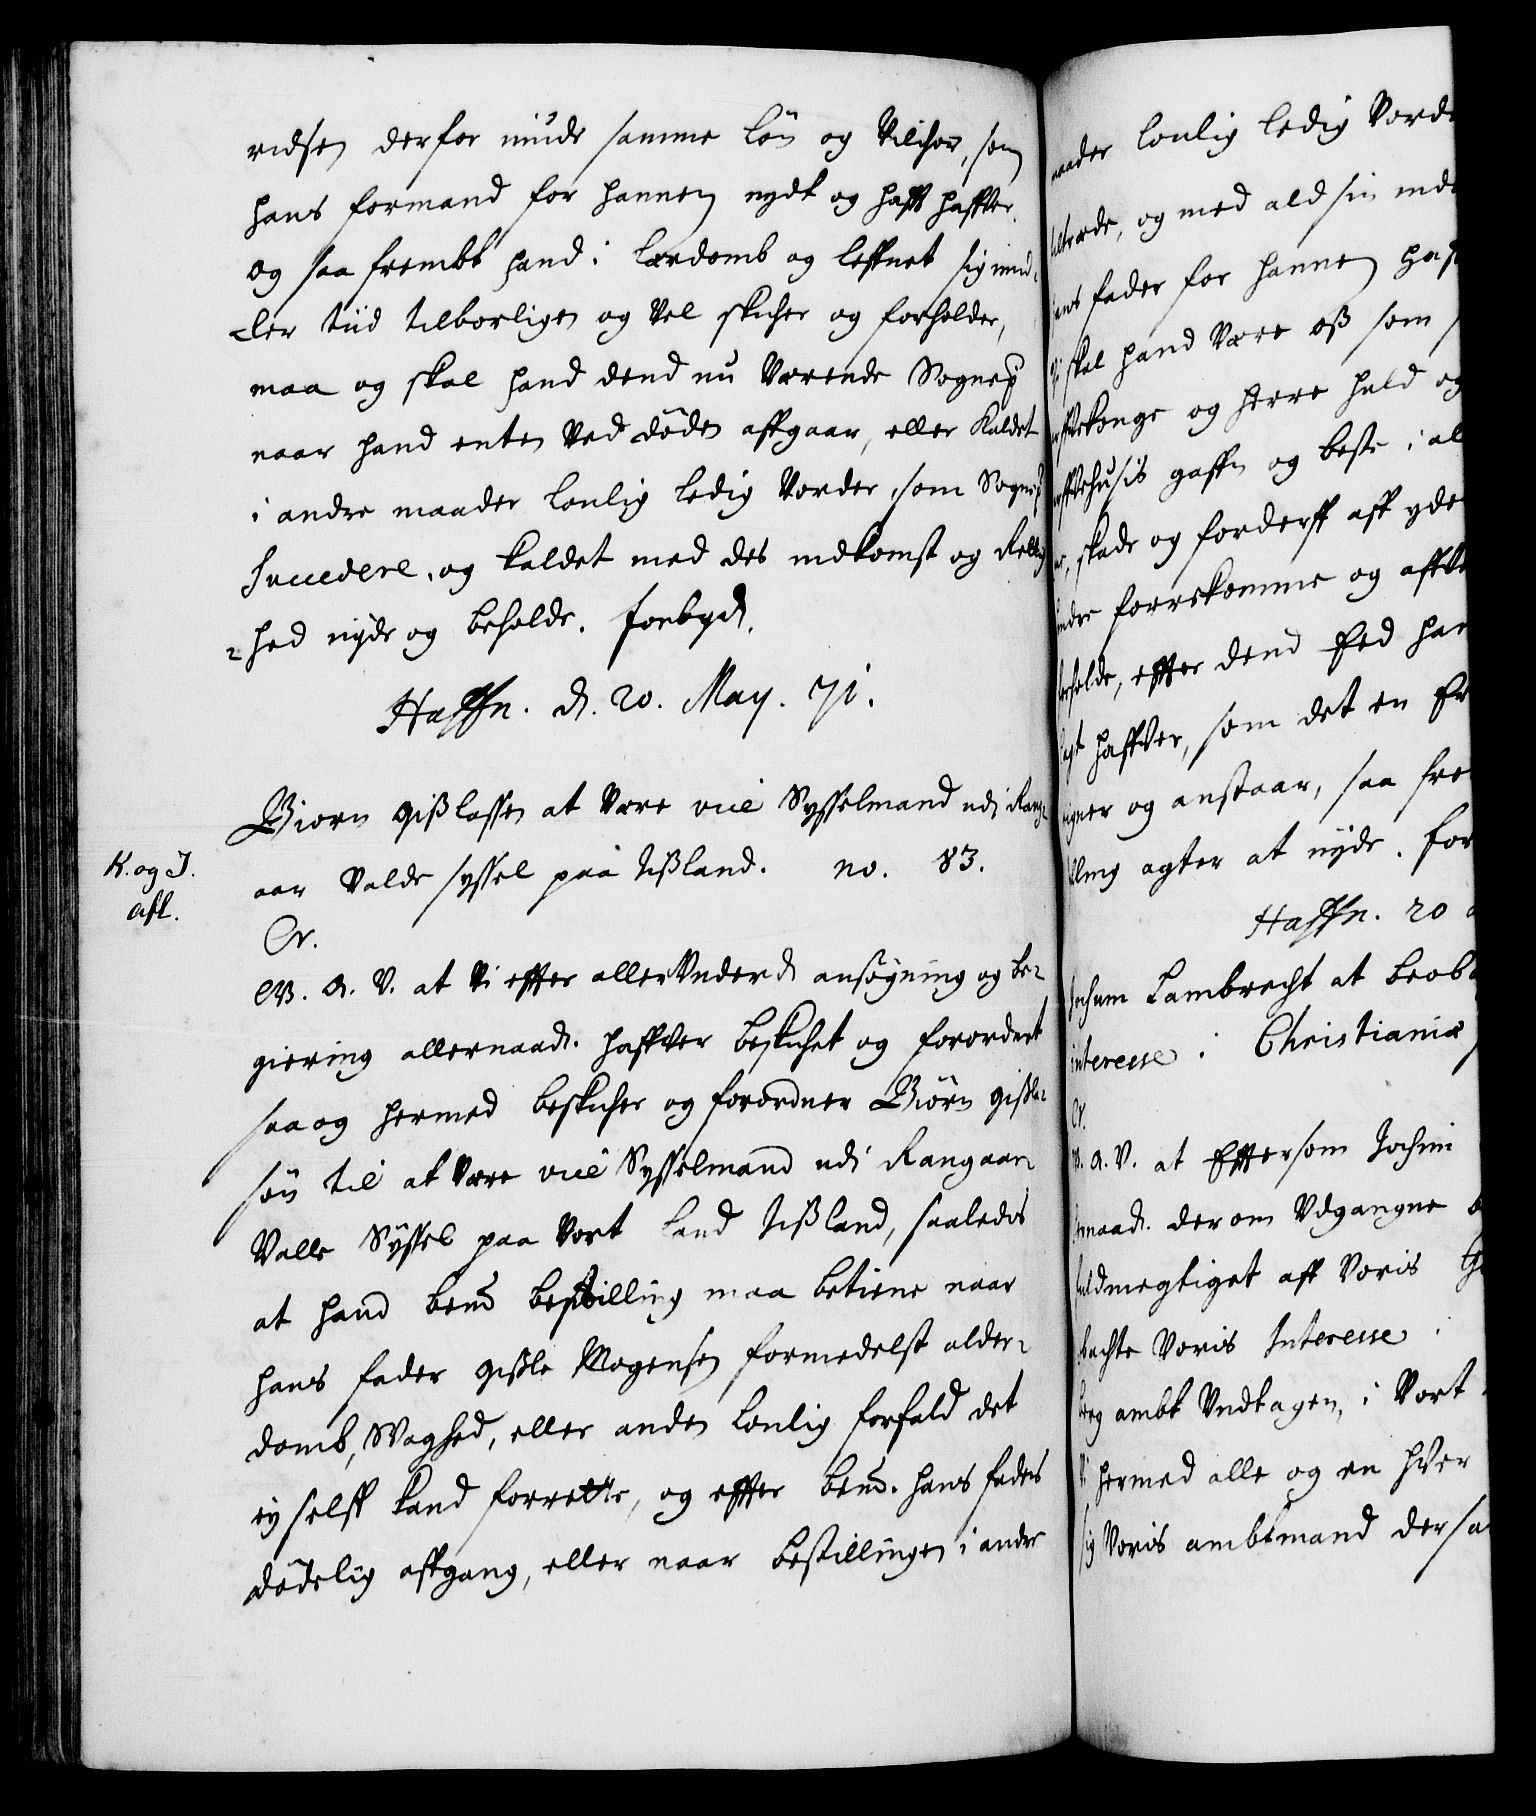 ridsen derfor niude samme Løn og Vilchor, som
hans formand for hannem nydt og hafft haffver.
og saa frembt hand i Lærdomb og Leffnet sig imid-
ler tiid tilbørligen og Vel skicher og forholder,
maa og skal hand dend nu Værende Sognep
naar hand enten Ved døden affgaar, eller Kaldet
i andre maader Lovlig Ledig Vorder, som Sognep
Succedere, og kaldet med des indkomst og Rettig
-hed nyde og beholde. forbyd.
Haffn. d. 20. May. 71.
Biorn Gißlassen at Være vice Sysselmand udi Rang-
aar Valde syssel paa Ißland. no. 83.
K. og I.
afl.
Cr.
W. A. V. at Vi effter allerVnderd ansøgning og be-
giering allernaad. haffver beskichet og forordnet
saa og hermed beskicher og forordner Biørn Gißle-
søn til at Være vice Sysselmand udi Rangaar
Valle Syssel paa Vort Land Ißland, saaledis
at hand bemd bestilling maa betiene naar
hans fader Gißle Mogensen formedelst alder-
domb, Svaghed, eller anden Lovlig forfald det
ey selff kand forrette, og effter bemd. hans faders
dødelig affgang, eller naar bestillingen i andre
maader Lovlig Ledig Vorde
tiltræde, og med ald sin ind
hans fader for hannem haf
skal hand Være oß som
Konge og Herre huld og
huusis gaffn og beste i al
skade og forderff aff yde
forrekomme og affV
holde, effter dend Eed han
lagt haffver, som det en Er
egner og anstaar, saa fre
lling agter at nyde. for
Haffn. 20
Jochum Lambrecht at beob
interesse i Christianiæ
Cr.
W. A. V. at Effter som Jochim
naad. derom Vdgangne
fuldmegtiget aff Voris
achte Voris Interesse
ambt Vndtagen, i Vort
Vi hermed alle og en hver
sig Voris ambtmand dersa